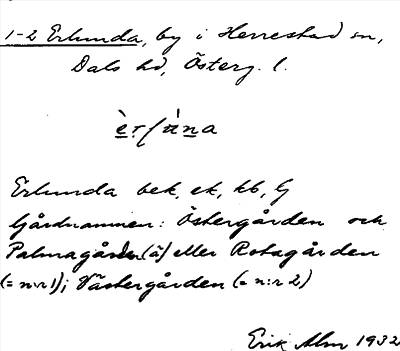 1-2 Erlunda, by i Herrestad sn,
Dals hd, Österg. l.
Erlunda bek, ek, kb, G
Gårdnamnen: Östergården och
Palmagården (ä) eller Rotagården
(= n:r 1); Västergården (= n:r 2)
Erik Alm 1932